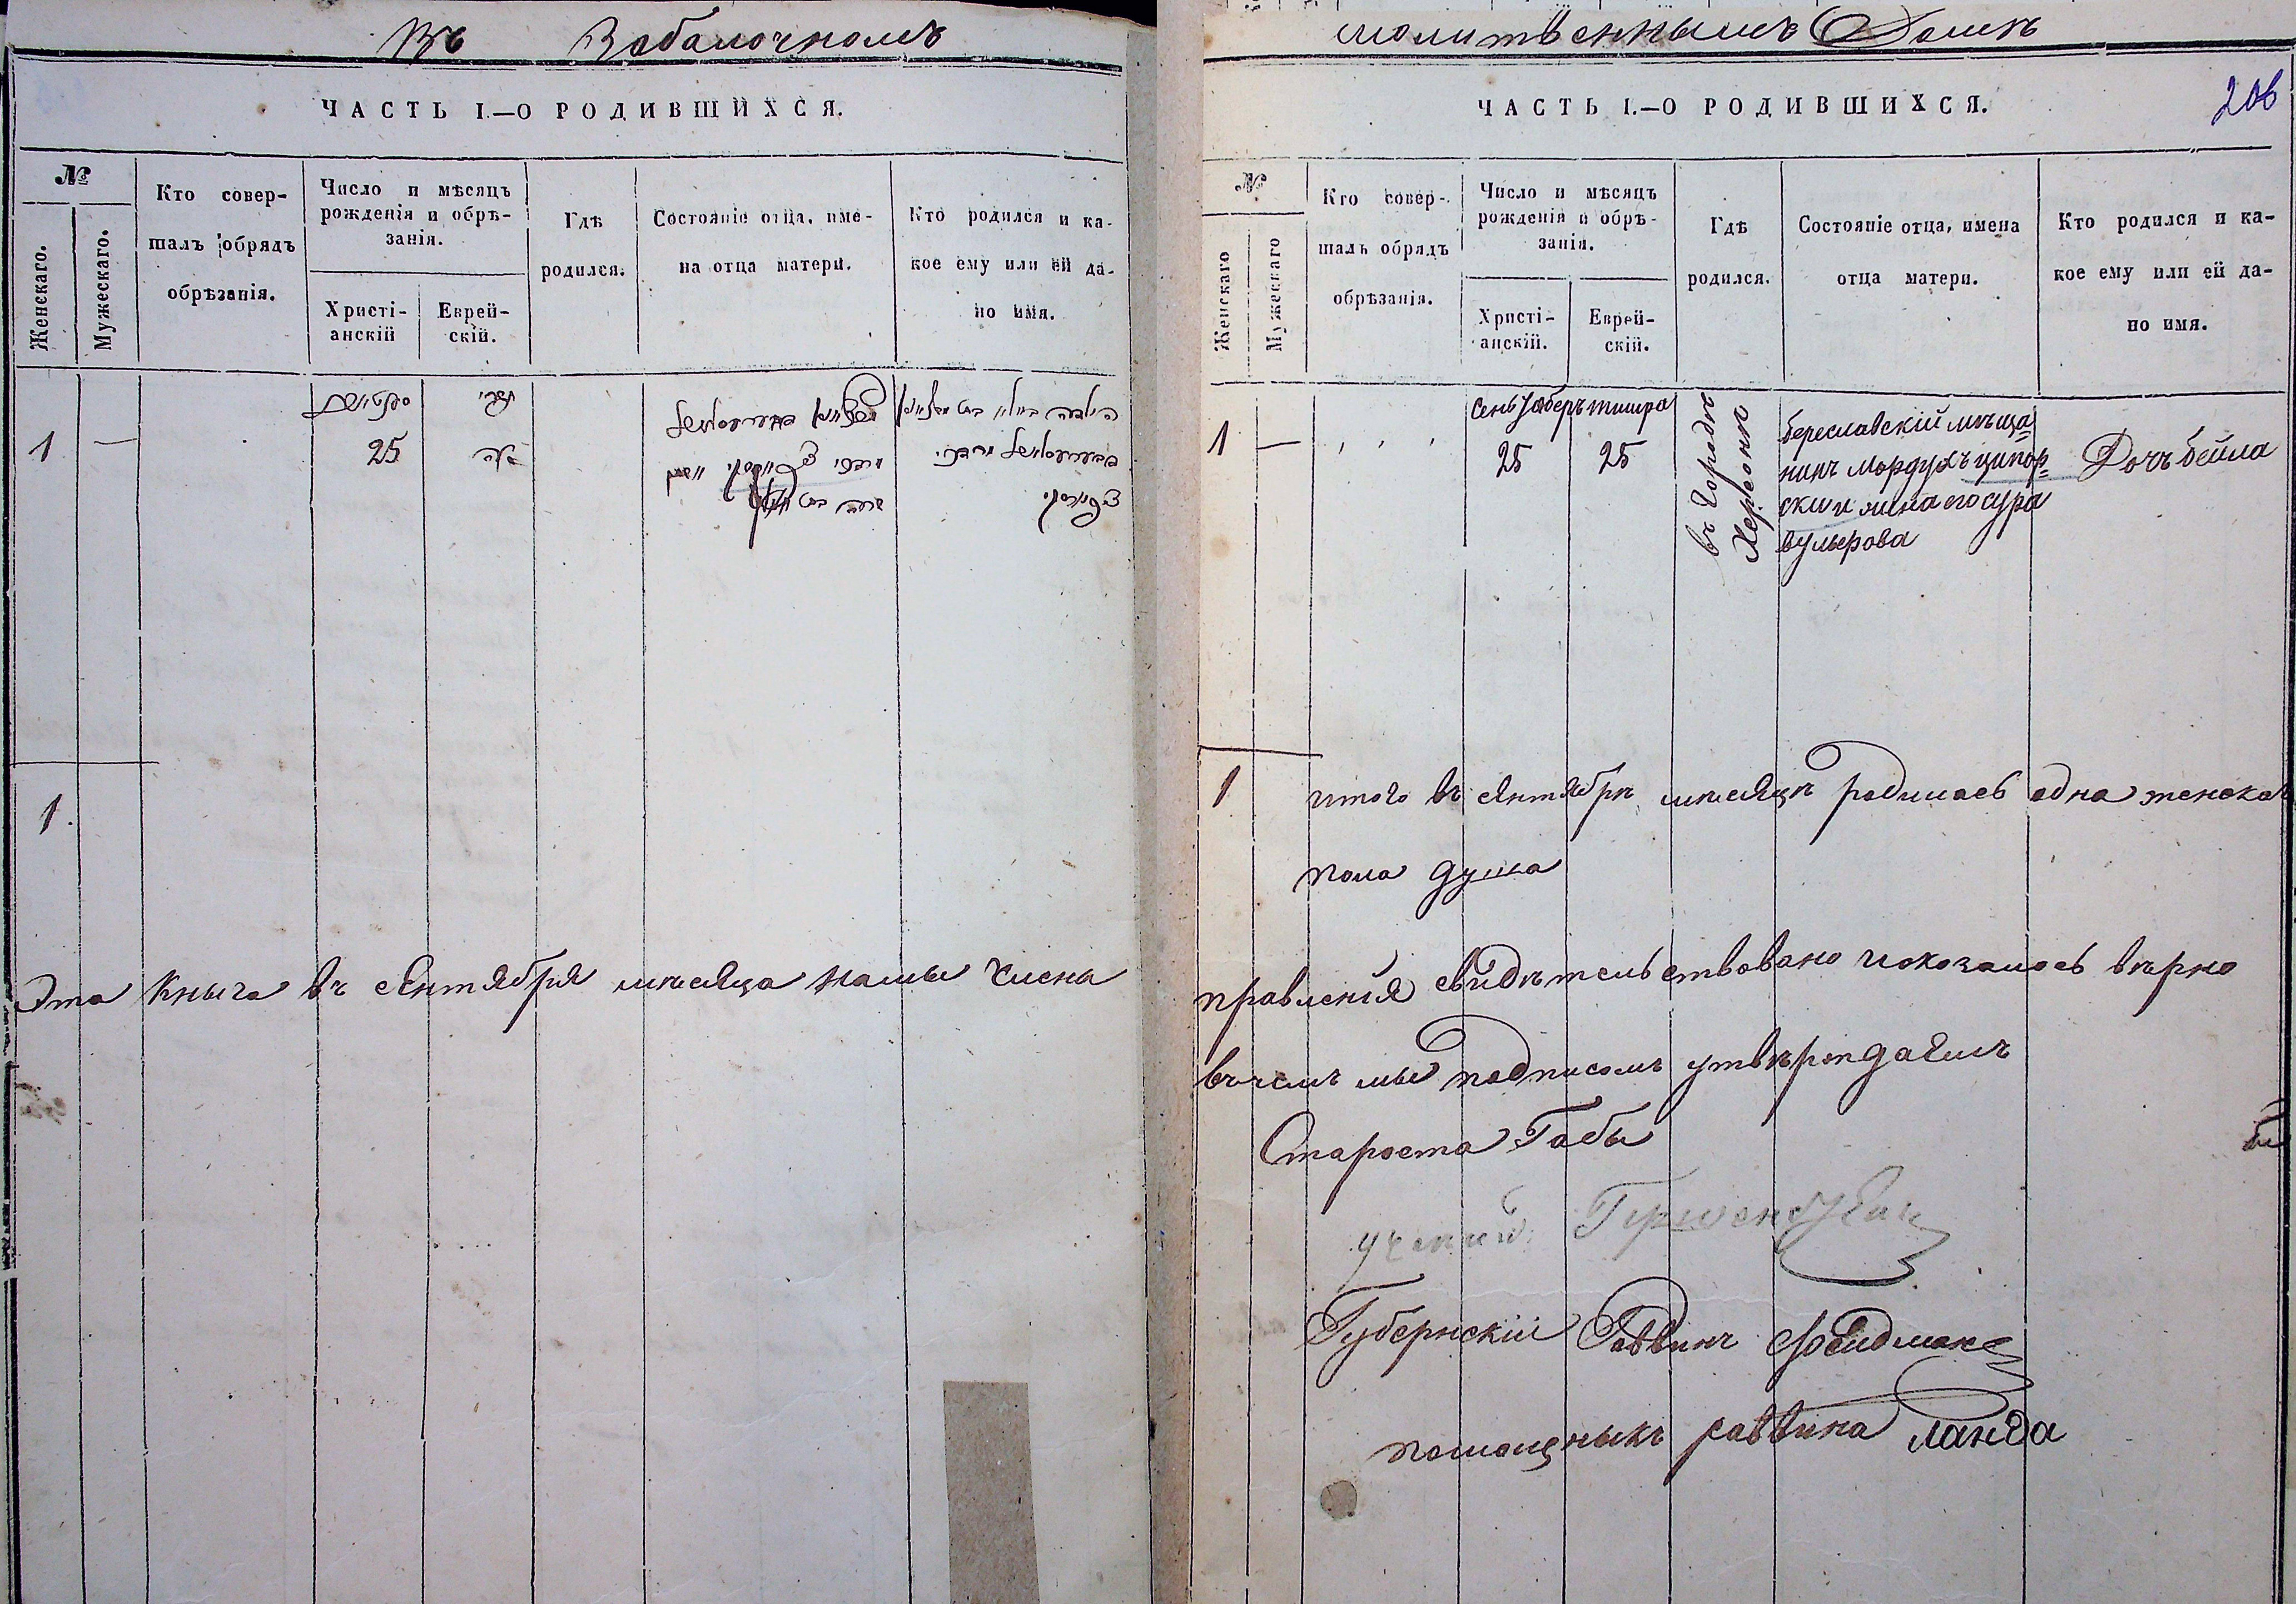 Въ Забалочномъ
ЧАСТЬ I.—О РОДИВШИХСЯ.
№
Женскаго.
Мужескаго.
Кто совер-
шалъ обрядъ
обрѣзанія.
Число и мѣсяцъ
рожденія и обрѣ-
занія.
Христі-
анскій
Еврей-
скій.
Гдѣ
родился.
Состояніе отца, име-
на отца матери.
Кто родился и ка-
кое ему или ей да-
но имя.
1 —
25
1.
Эта Кныга въ сентября мѣсяца нами Члена
молитвеннымъ Домѣ
206
ЧАСТЬ I.—О РОДИВШИХСЯ.
№
Женскаго
Мужескаго
Кто совер-
шалъ обрядъ
обрѣзанія.
Число и мѣсяцъ
рожденія и обрѣ-
занія.
Христі-
анскій.
Еврей-
скій.
Гдѣ
родился.
Состояніе отца, имена
отца матери.
Кто родился и ка-
кое ему или ей да-
но имя.
1 —
тишра
25 25
въ Городѣ
Херсонѣ
береславскій мѣща=
нинъ Мордухъ ципор=
ски и жена его сура
вульерова
Дочъ бейла
1 итого въ сентябрѣ мѣсяцѣ родилась одна женска
пола душа
правленія свидѣтельствовано иоказалось вѣрно
въчемъ мы подписомъ утвѣрждаемъ
Староста Габы
ученый
Губернскій Раввинъ Фейдман
помощныкъ раввина Ланда